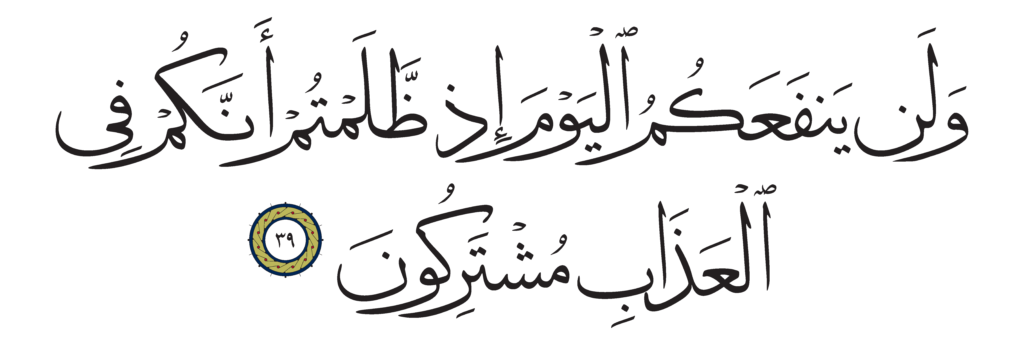 وَلَن يَنفَعَكُمُ ٱلْيَوْمَ إِذ ظَّلَمْتُمْ أَنَّكُمْ فِى
ٱلْعَذَابِ مُشْتَرِكُونَ ٣٩